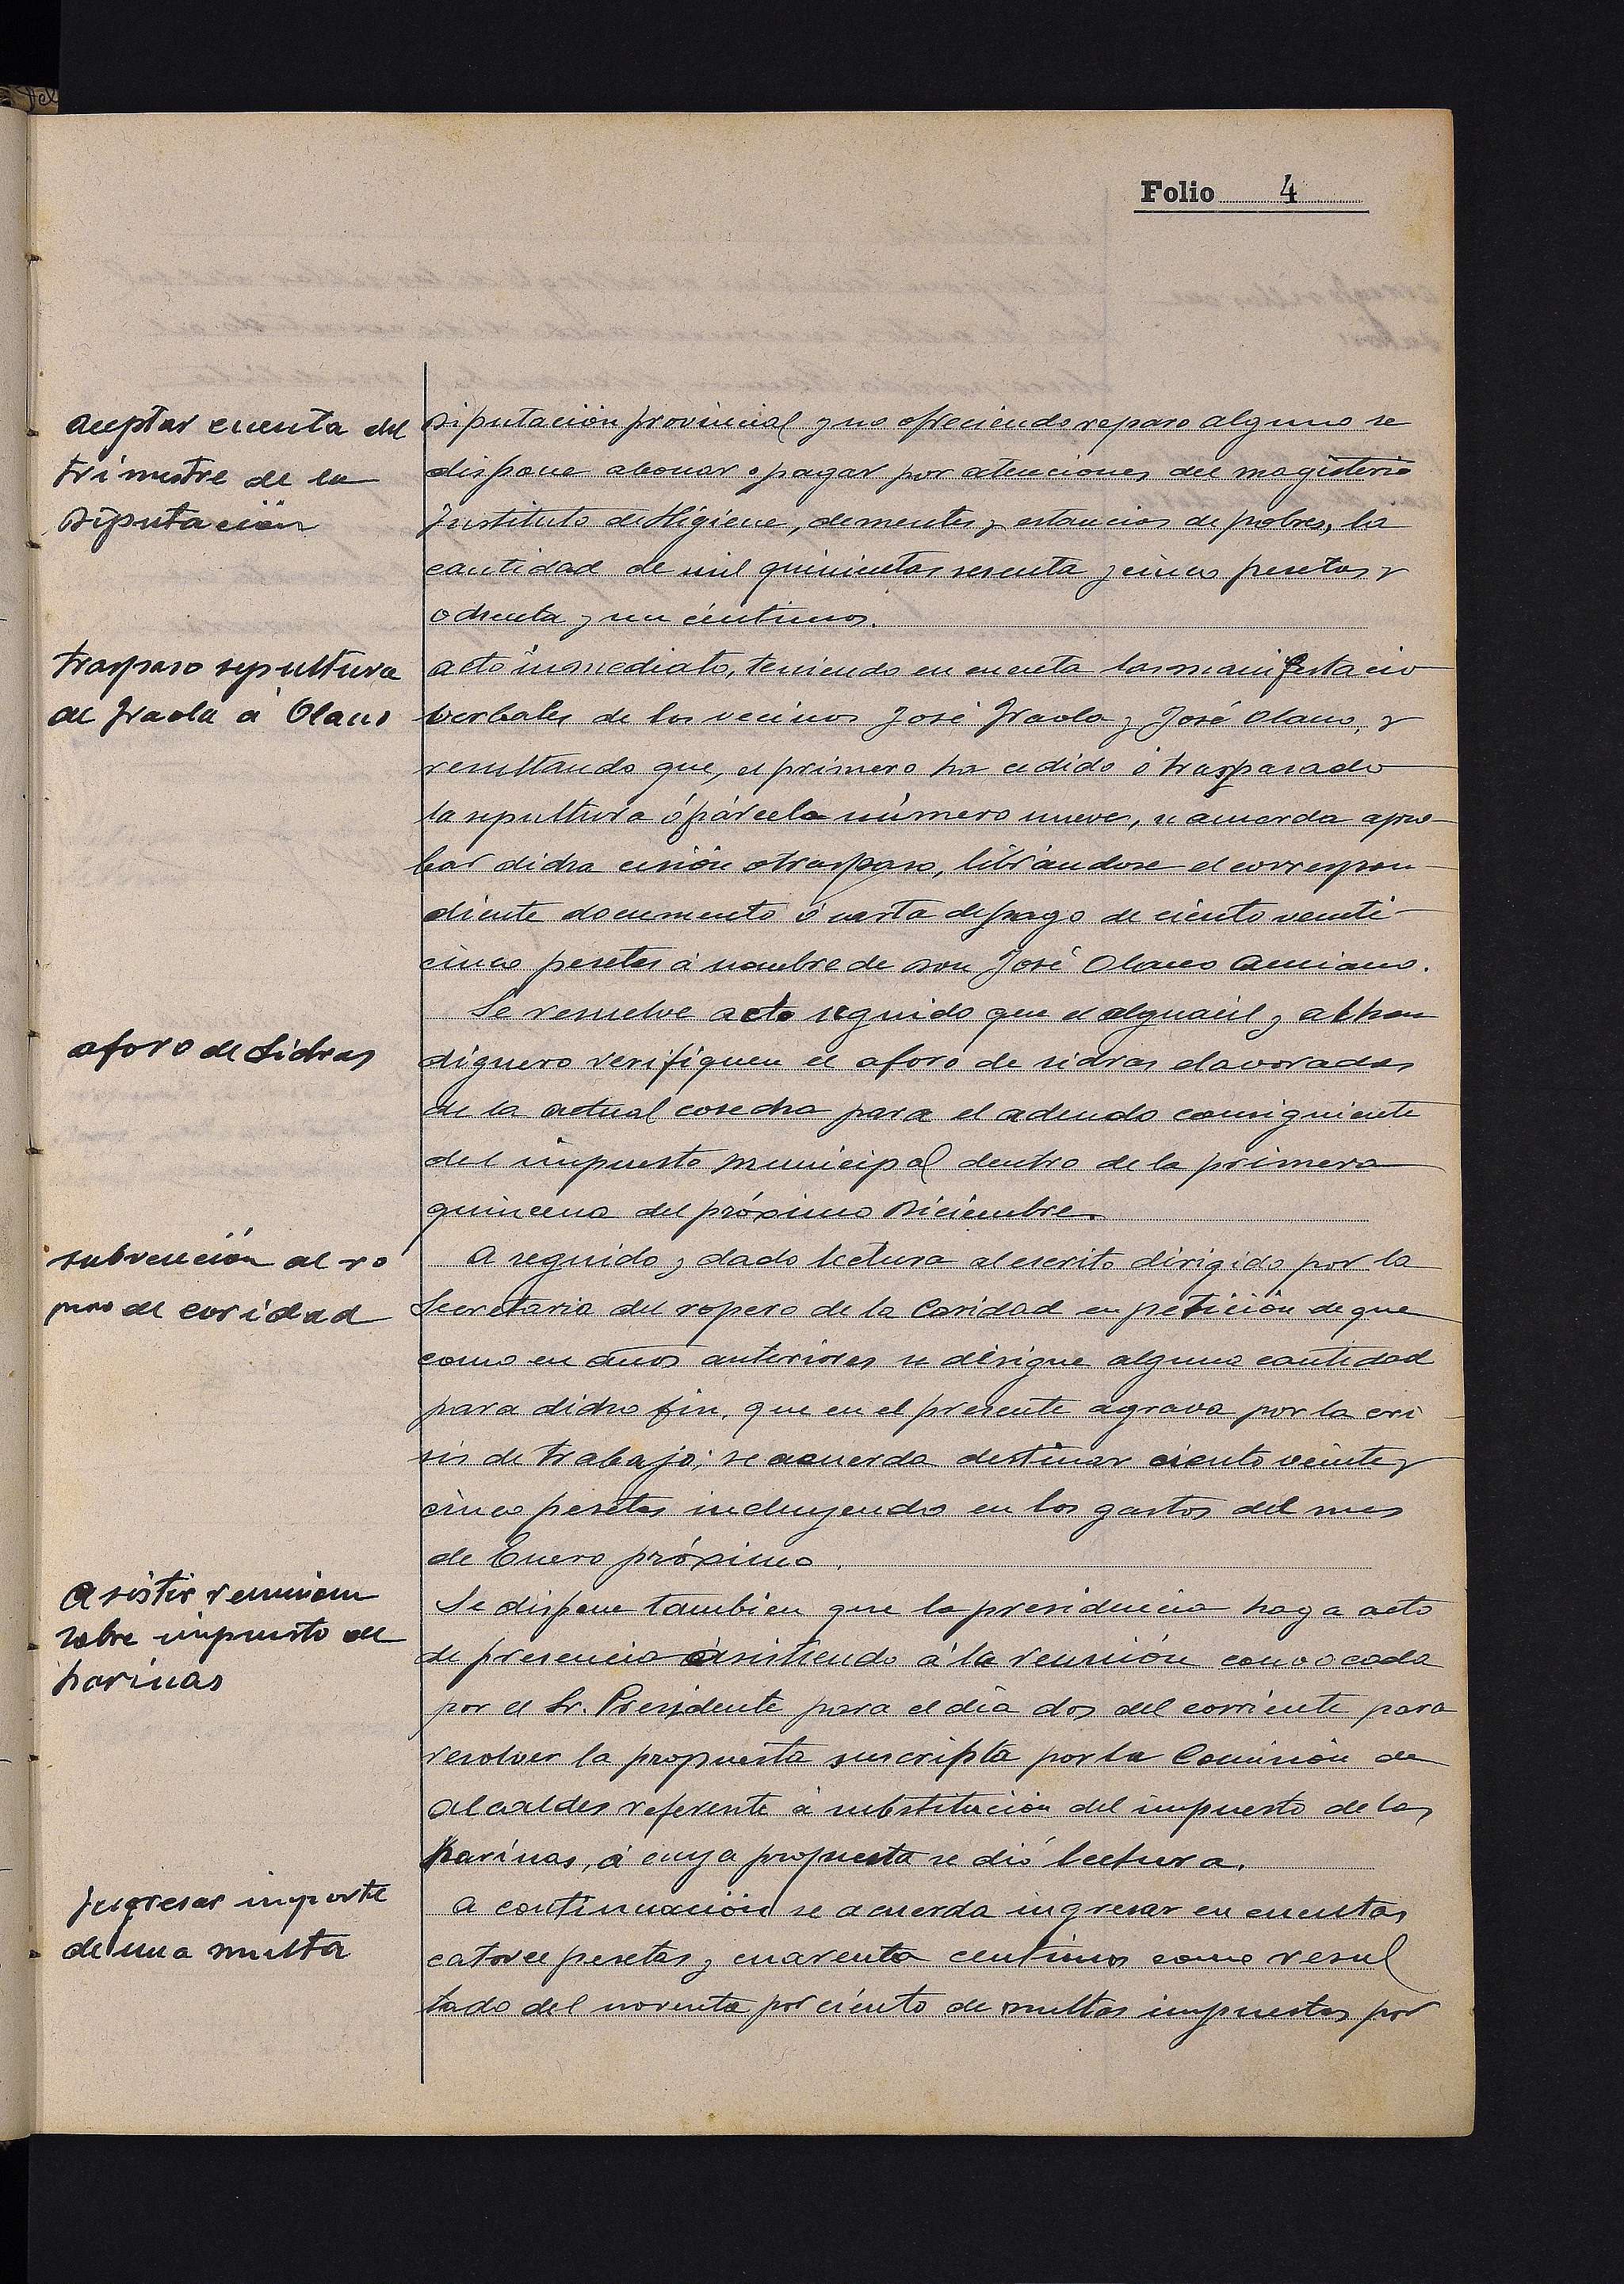 Folio 4
Aceptar cuenta del
trimestre de la
Diputación
Diputación provincial y no ofreciendo reparo alguno se
dispone abonar o pagar por atenciones del magisterio
Instituto de Higiene, dementes y estancias de pobres, la
cantidad de mil quinientas sesenta y cinco pesetas y
ochenta y un céntimos.
Traspaso sepultura
de Iraola á Olano
acto inmediato, teniendo en cuenta las manifestacio
verbales de los vecinos José Iraola y José Olano, y
resultando que, el primero ha cedido ó traspasado
la sepultura ó párcela número nueve, se acuerda apro-
bar dicha cesión o traspaso, librándose el correspon-
diente documento ó carta de pago de ciento veinti-
cinco pesetas á nombre de Don José Olano Amiano.
aforo de Sidras
Se resuelve acto seguido que el alguacil y alhon
diguero verifiquen el aforo de sidras elavoradas
de la actual cosecha para el adeudo consiguiente
del impuesto municipal dentro de la primera
quincena del próximo Diciembre.
subvención al ro
pero de caridad
A seguido y dado lectura al escrito dirigido por la
Secretaria del ropero de la Caridad en petición de que
como en años anteriores se désigne alguna cantidad
para dicho fin, que en el presente agrava por la cri-
sis de trabajo; se acuerda destinar ciento veinte y
cinco pesetas incluyendo en los gastos del mes
de Enero próximo.
Asistir reunion
sobre impuesto de
harinas
Se dispone tambien que la presidencia haga acto
de presencia asistiendo á la reunión convocada
por el Sr. Presidente para el dia dos del corriente para
resolver la propuesta suscripta por la Comisión de
Alcaldes referente á substitución del impuesto de las
harinas, á cuya propuesta se dió lectura.
Ingresar importe
de una multa
A continuación se acuerda ingresar en cuentas
catorce pesetas y cuarenta centimos como resul
tado del noventa por ciento de multas impuestas por